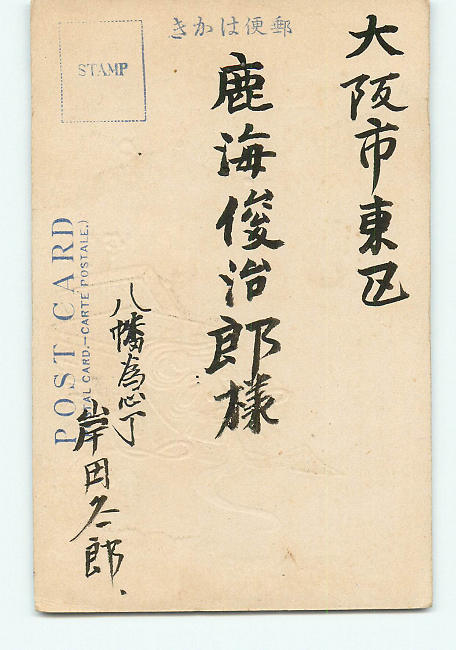 郵便はかき
STAMP
大阪市東区
鹿海俊治郎様
八幡為心丁
岸田久一郎
POST CARD
AL CARD.—CARTE POSTALE.)